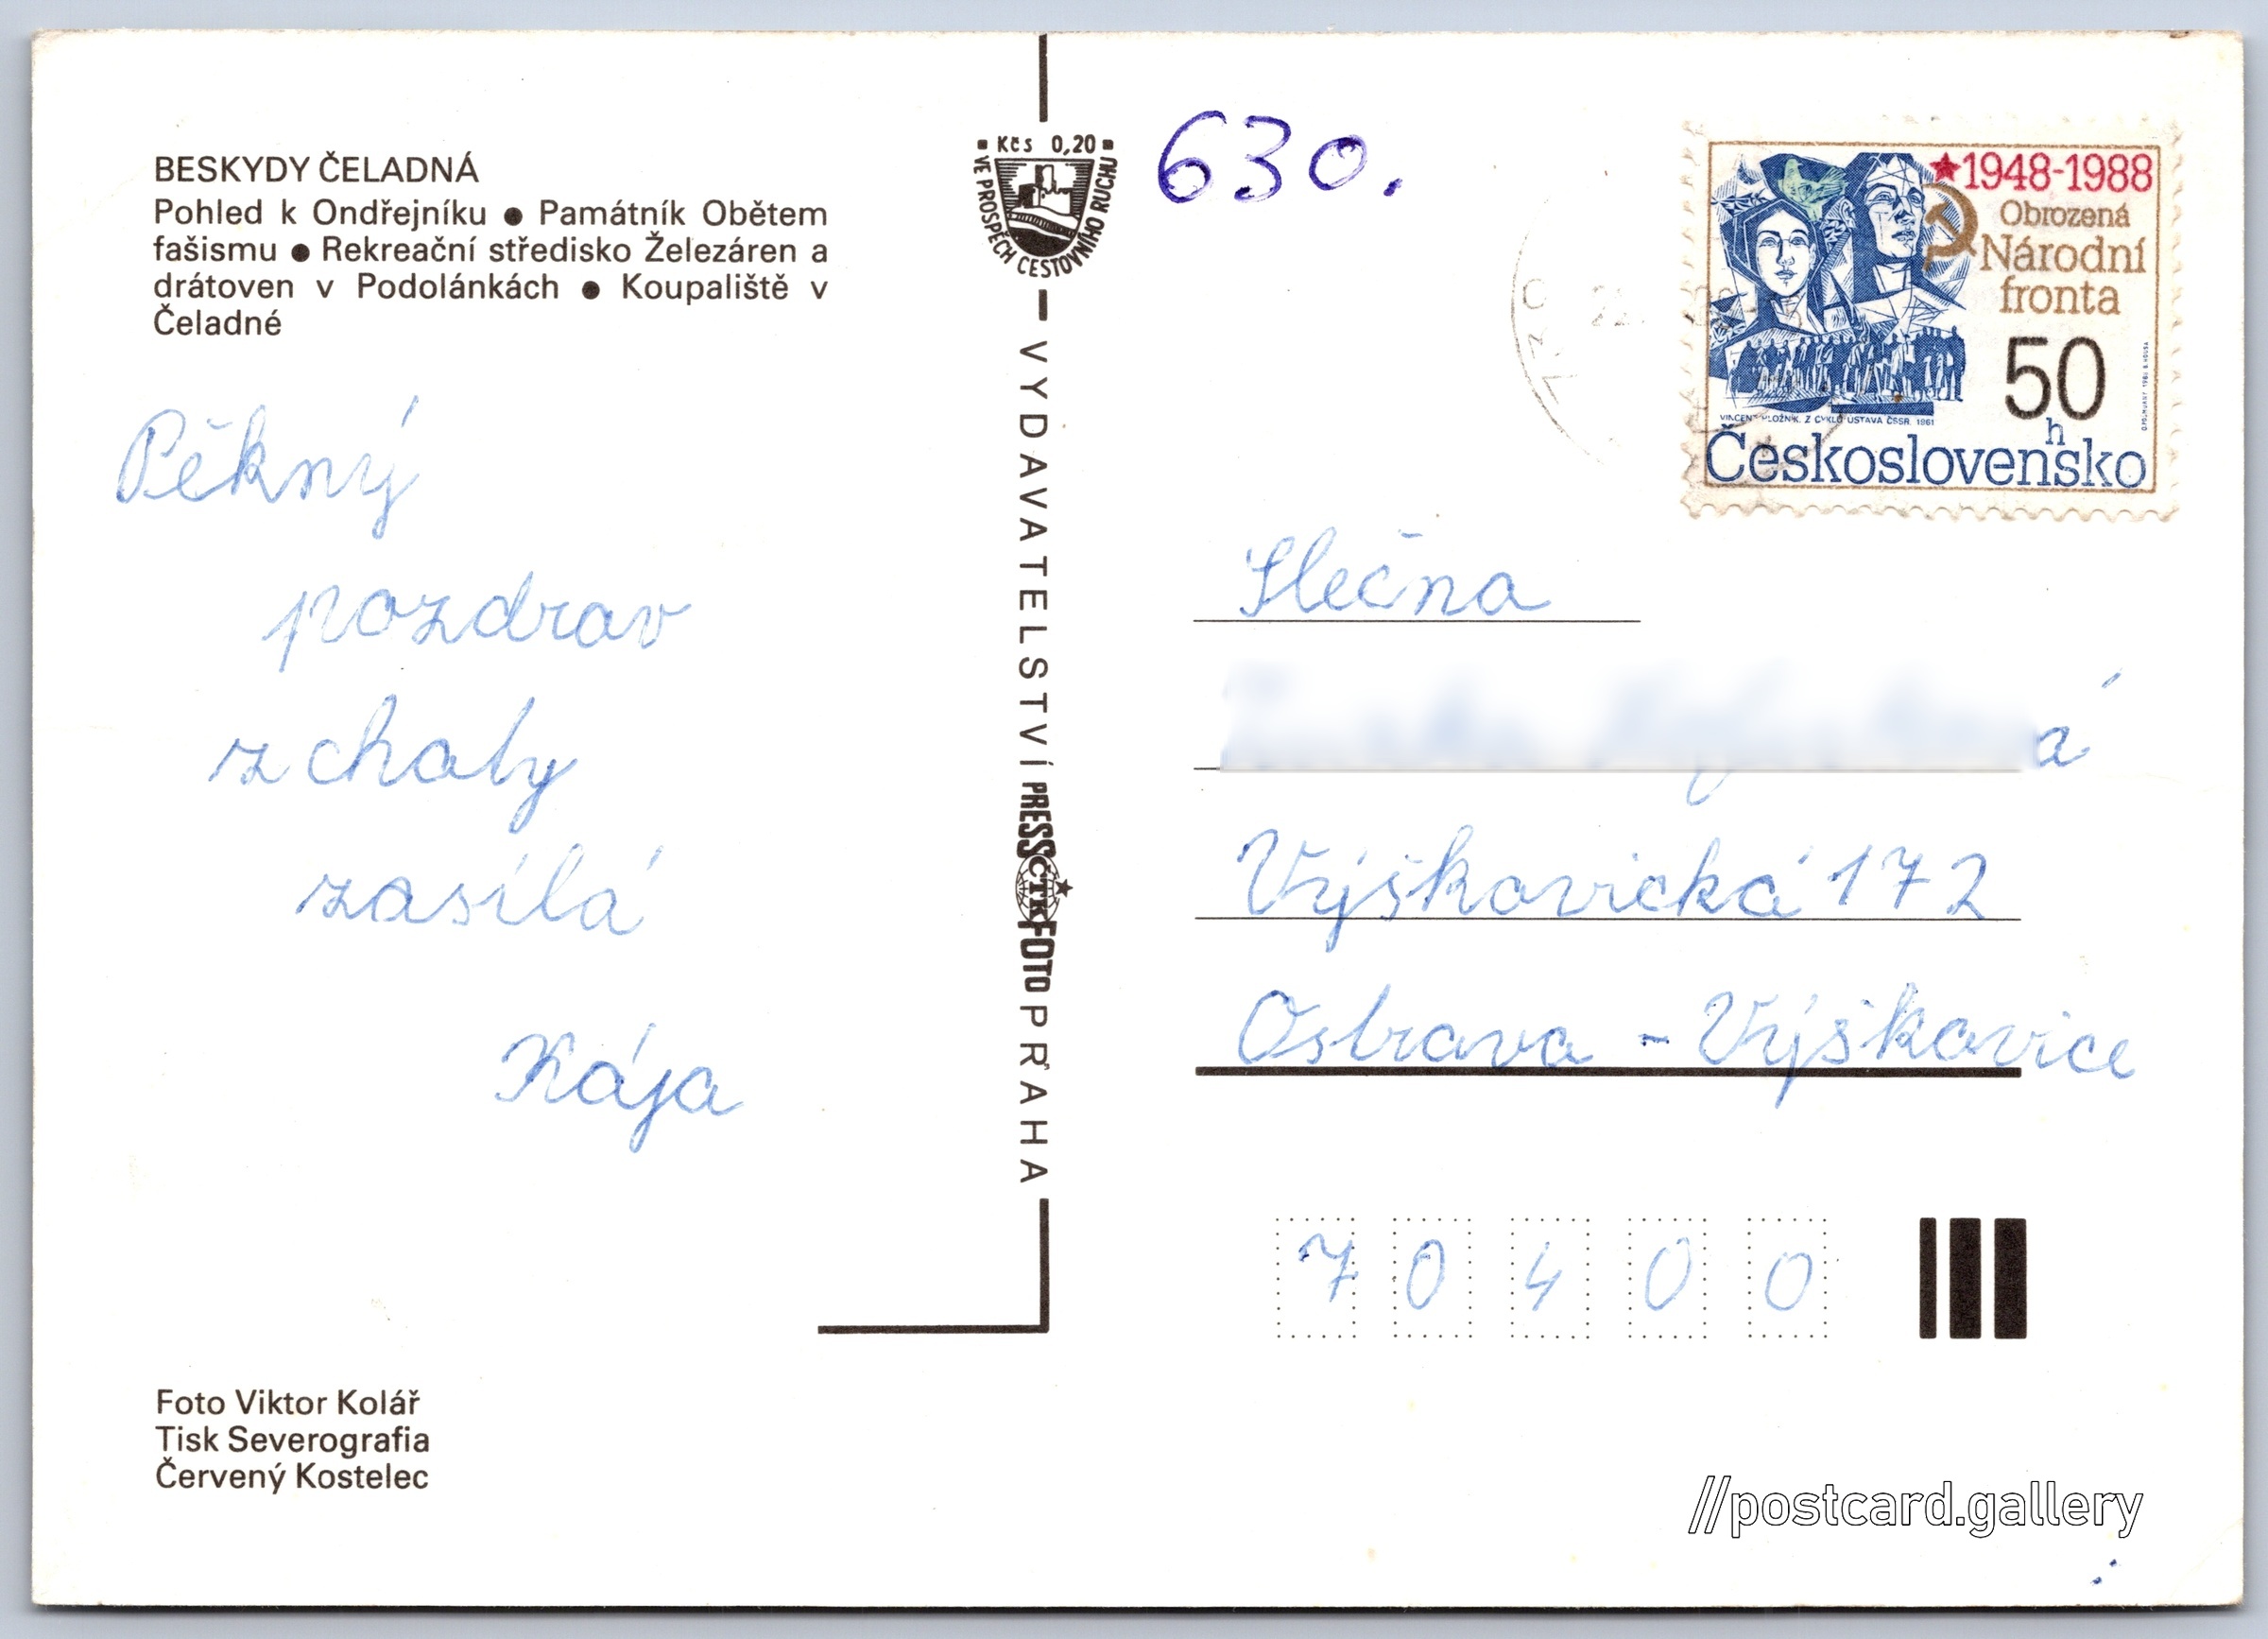 BESKYDY ČELADNÁ
Pohled k Ondřejníku ● Památník Obětem
fašismu ● Rekreační středisko Železáren a
drátoven v Podolánkách ● Koupaliště v
Čeladné
Pěkný
pozdrav
z chaty
zasílá
Kája
Foto Viktor Kolář
Tisk Severografia
Červený Kostelec
Kčs 0,20
VE PROSPĚCH CESTOVNÍHO RUCHU
VYDAVATELSTVÍ PRESSFOTO PRAHA
ČTK
630.
★1948-1988
Obrozená
Národní
fronta
50
h
VINCENT HLOŽNÍK. Z CYKLU ÚSTAVA ČSSR. 1961
Československo
Slečna
á
Výškovická 172
Ostrava - Výškovice
70400
//postcard.gallery